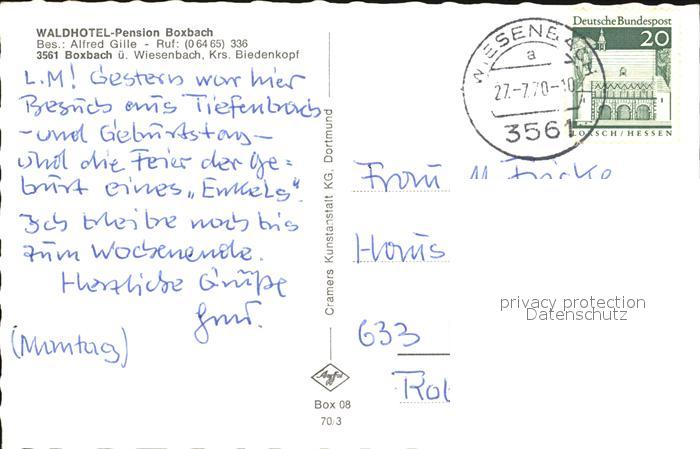 WALDHOTEL-Pension Boxbach
Bes.: Alfred Gille - Ruf: (0 64 65) 336
3561 Boxbach ü. Wiesenbach, Krs. Biedenkopf
L.M! Gestern war hier
Besuch aus Tiefenbach
- und Geburtstag -
und die Feier der Ge=
burt eines "Enkels".
Ich bleibe noch bis
zum Wochenende.
Herzliche Grüße
(Montag)
Cramers Kunstanstalt KG, Dortmund
Agfa
Box 08
70/3
WIESENBACH
a
27.-7.70-10
3561
Deutsche Bundespost
20
LORSCH/HESSEN
Frau
Haus
633
privacy protection
Datenschutz